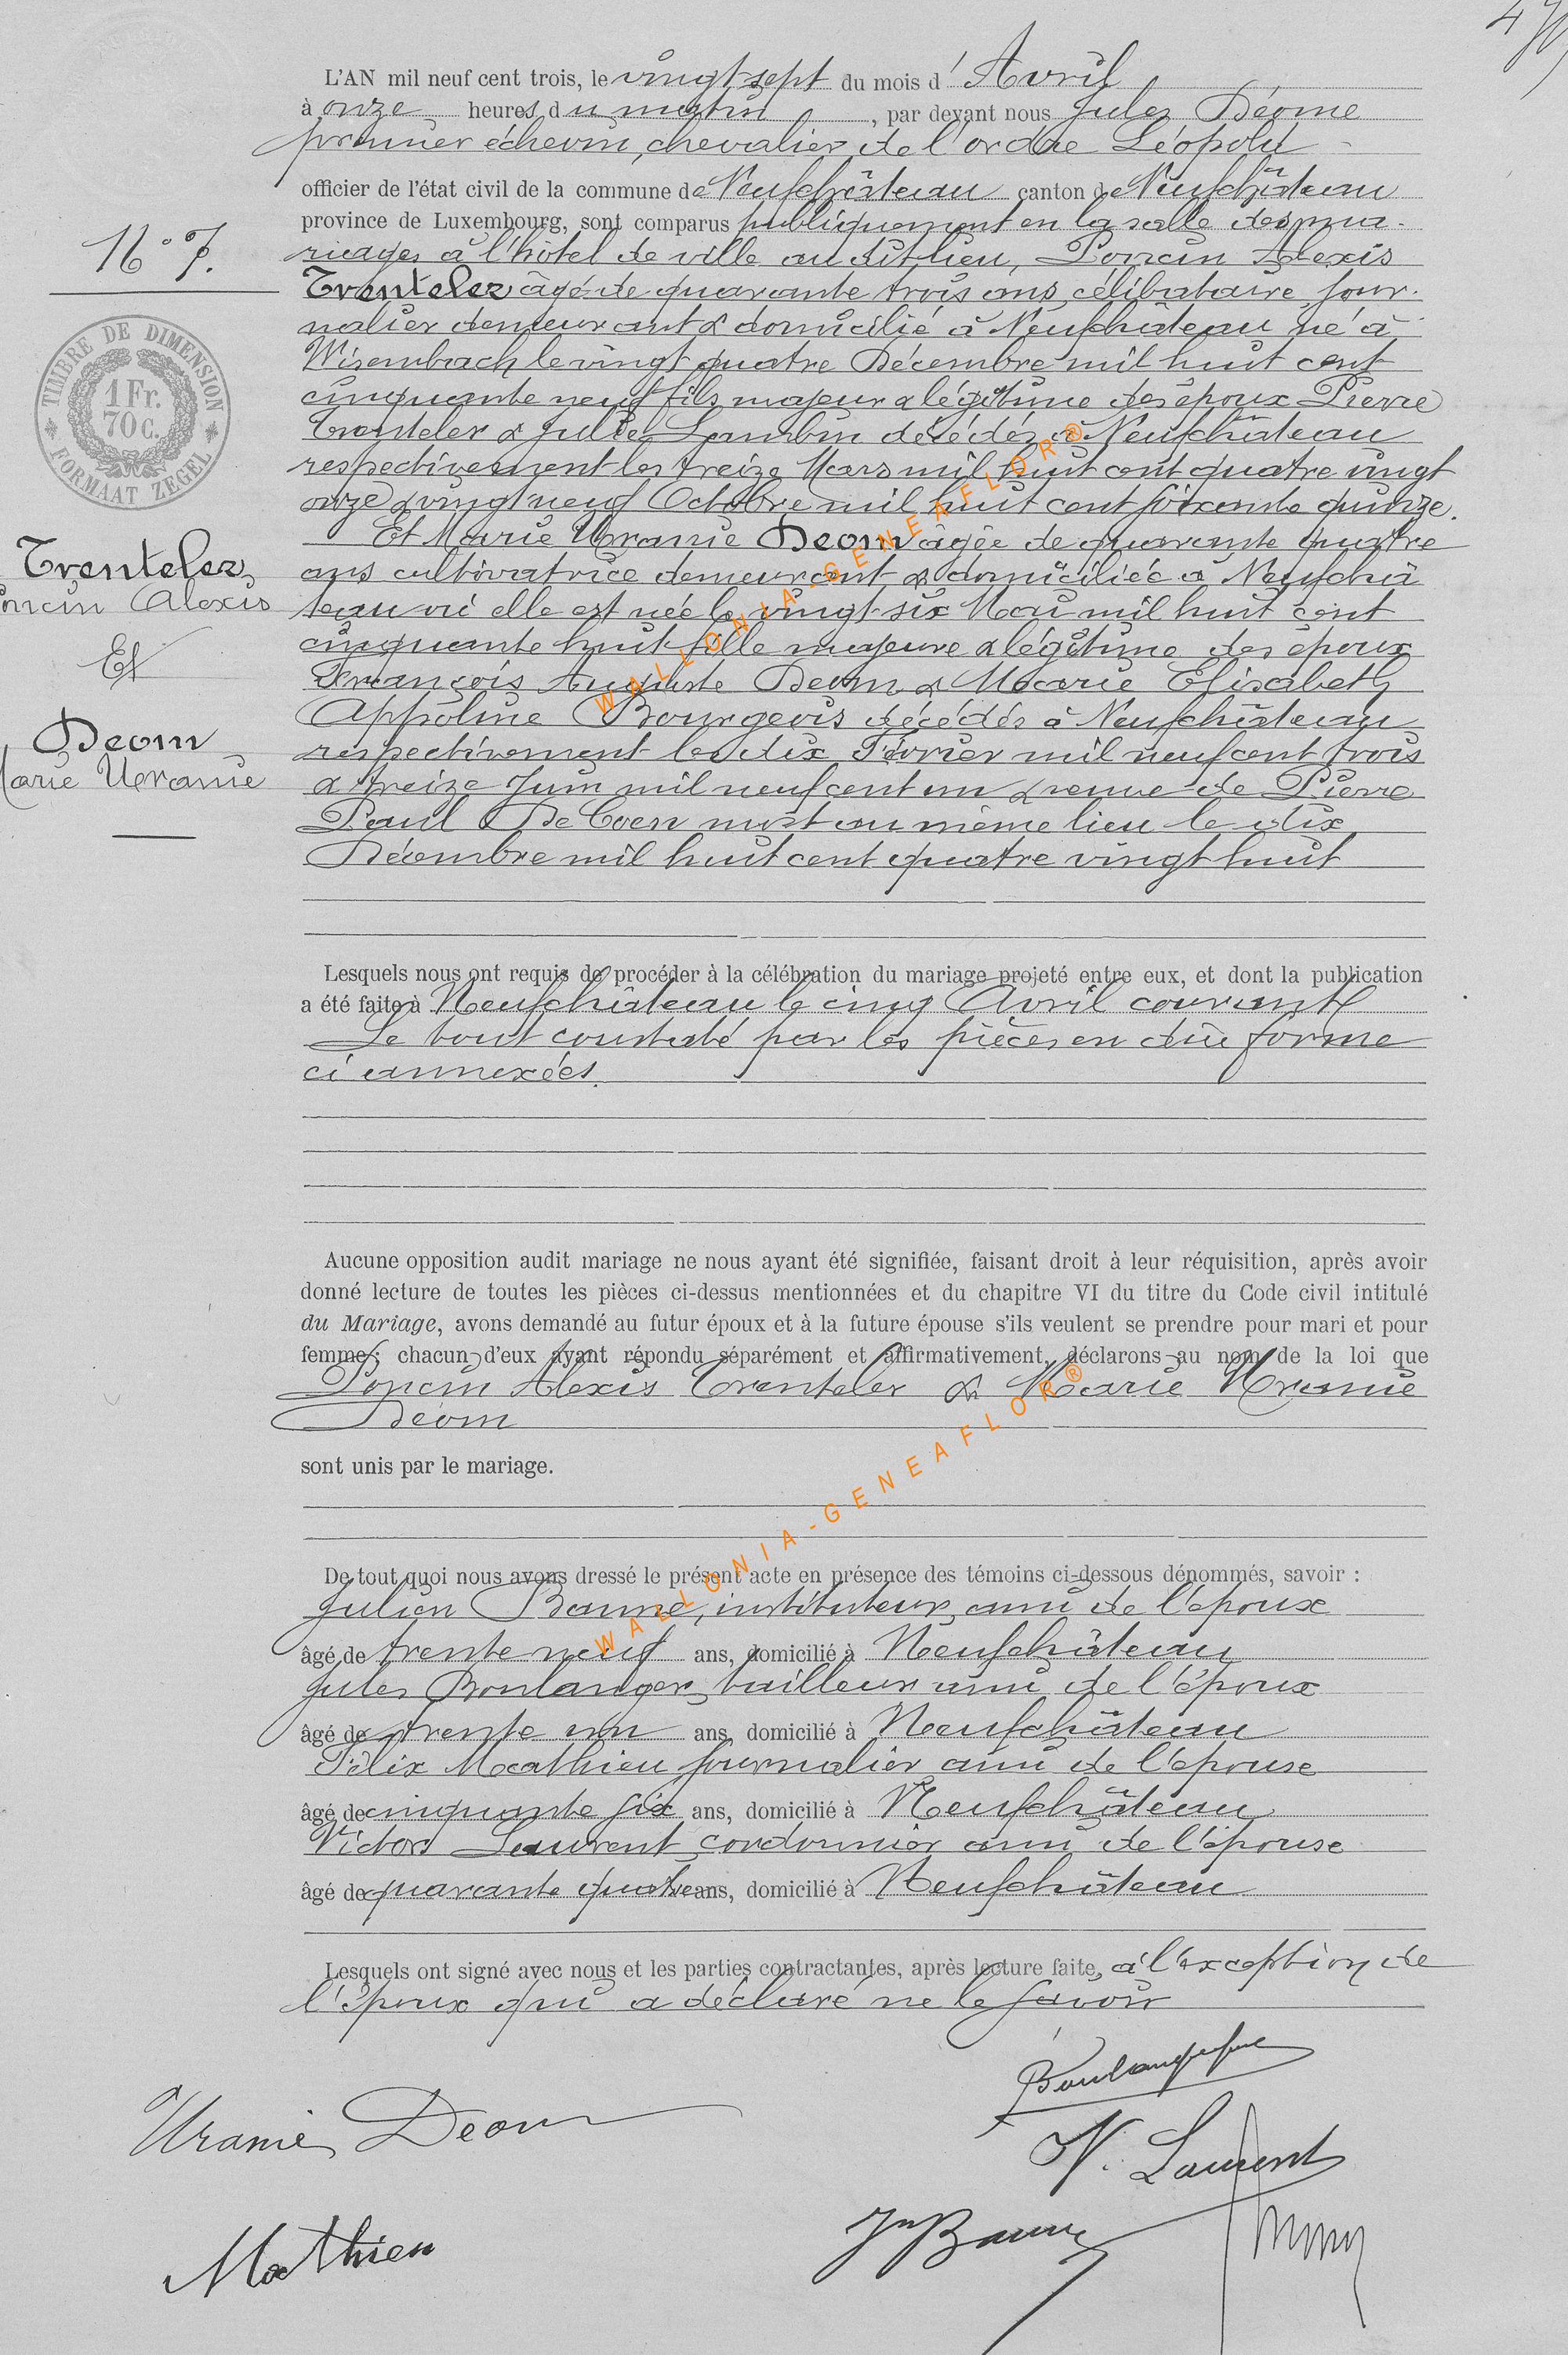 L'AN mil neuf cent trois, le vingt sept du mois d'Avril
à onze heures du matin, par devant nous Jules Déome
premier échevin, chevalier de l'ordre Léopold
officier de l'état civil de la commune de Neufchâteau canton de Neufchâteau
province de Luxembourg, sont comparus publiquement en la salle des ma-
riages à l'hôtel de ville audit lieu, Poncin Alexis
Trenteler âgé de quarante trois ans, célibataire, jour-
nalier demeurant & domicilié à Neufchâteau né à
Wisembach le vingt quatre Décembre mil huit cent
cinquante neuf fils majeur & légitime des époux Pierre
Trenteler & Julie Lambin décédés à Neufchâteau
respectivement les treize Mars mil huit cent quatre vingt
onze & vingt neuf Octobre mil huit cent soixante quinze.
Et Marie Uranie Deom âgée de quarante quatre
ans cultivatrice demeurant & domiciliée à Neufchâ
teau où elle est née le vingt-six Mai mil huit cent
cinquante huit fille majeure & légitime des époux
François Auguste Deom & Marie Elisabeth
Appoline Bourgeois décédés à Neufchâteau
respectivement les dix Février mil neuf cent trois
& treize Juin mil neuf cent un & veuve de Pierre
Paul De Coen mort au même lieu le dix
Décembre mil huit cent quatre vingt huit
N° 7.
TIMBRE DE DIMENSION
1 Fr.
70 c.
FORMAAT ZEGEL
Trenteler
Poncin Alexis
Et
Deom
Marie Uranie
Lesquels nous ont requis de procéder à la célébration du mariage projeté entre eux, et dont la publication
a été faite à Neufchâteau le cinq Avril courant
Le tout constaté par les pièces en due forme
ci annexées.
Aucune opposition audit mariage ne nous ayant été signifiée, faisant droit à leur réquisition, après avoir
donné lecture de toutes les pièces ci-dessus mentionnées et du chapitre VI du titre du Code civil intitulé
du Mariage, avons demandé au futur époux et à la future épouse s'ils veulent se prendre pour mari et pour
femme; chacun d'eux ayant répondu séparément et affirmativement, déclarons au nom de la loi que
Poncin Alexis Trenteler & Marie Uranie
Déom
sont unis par le mariage.
De tout quoi nous avons dressé le présent acte en présence des témoins ci-dessous dénommés, savoir :
Julien Baune, instituteur, ami de l'époux
âgé de trente neuf ans, domicilié à Neufchâteau
Jules Boulanger, tailleur ami de l'époux
âgé de trente un ans, domicilié à Neufchâteau
Félix Mathieu journalier ami de l'épouse
âgé de cinquante six ans, domicilié à Neufchâteau
Victor Laurent cordonnier ami de l'épouse
âgé de quarante quatre ans, domicilié à Neufchâteau
Lesquels ont signé avec nous et les parties contractantes, après lecture faite, à l'exception de
l'époux qui a déclaré ne le savoir
Uranie Deom
V. Laurent
Mathieu
WALLONIA-GENEAFLOR®
WALLONIA-GENEAFLOR®